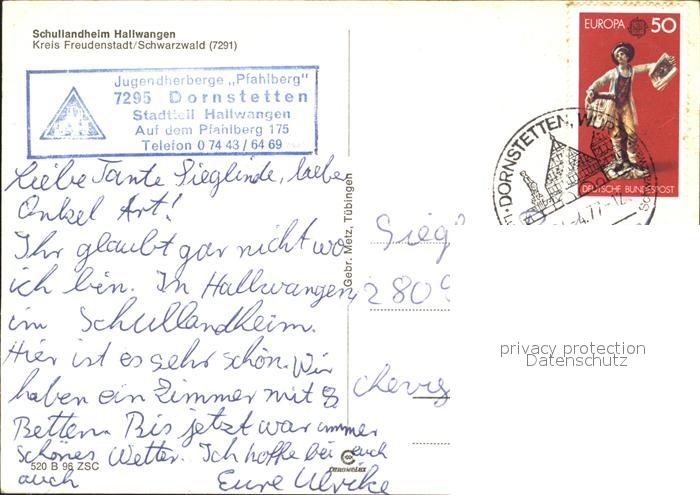 Schullandheim Hallwangen
Kreis Freudenstadt/Schwarzwald (7291)
Jugendherberge „Pfahlberg"
7295 Dornstetten
Stadtteil Hallwangen
Auf dem Pfahlberg 175
Telefon 0 74 43 / 64 69
EUROPA 50
DEUTSCHE BUNDESPOST
DORNSTETTEN, WÜR
4.77-12
Liebe Tante Sieglinde, lieber
Onkel Art!
Ihr glaubt gar nicht wo
ich bin. In Hallwangen,
im Schullandheim.
Hier ist es sehr schön. Wir
haben ein Zimmer mit 8
Betten. Bis jetzt war immer
schönes Wetter. Ich hoffe bei euch
auch Eure Ulrike
Gebr. Metz, Tübingen
Sieg
2809
520 B 96 ZSC
privacy protection
Datenschutz